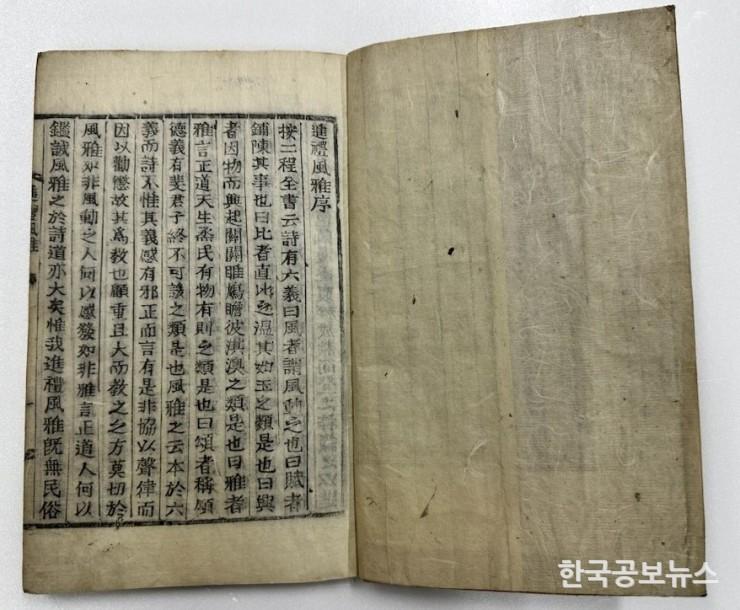 進禮風雅序
按二程全書云詩有六義曰風者謂風動之也曰賦者
鋪陳其事也曰比者直比之溫其如玉之類是也曰興
者因物而興起關關雎鳩瞻彼淇澳之類是也曰雅者
雅言正道天生烝民有物有則之類是也曰頌者稱頌
德義有斐君子終不可諼之類是也風雅之云本於六
義而詩不惟其義感有邪正而言有是非協以聲律而
因以勸懲故其爲敎也顧重且大而敎之之方莫切於
風雅如非風動之人何以感發如非雅言正道人何以
鑑誡風雅之於詩道亦大矣惟我進禮風雅旣無民俗
進禮風雅
한국공보뉴스